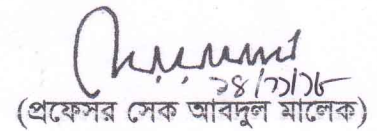 ১৪/১১/১৮
(প্রফেসর সেক আবদুল মালেক)